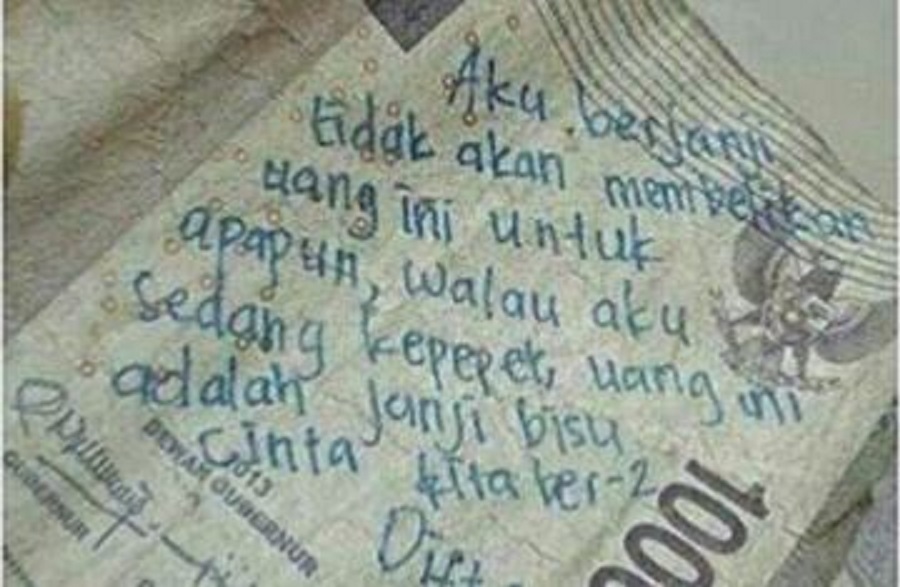 Aku berjanji
tidak akan membelikan
uang ini untuk
apapun, walau aku
sedang kepepet, uang ini
adalah janji bisu
cinta kita ber-2
2013
DEWAN GUBERNUR
GUBERNUR